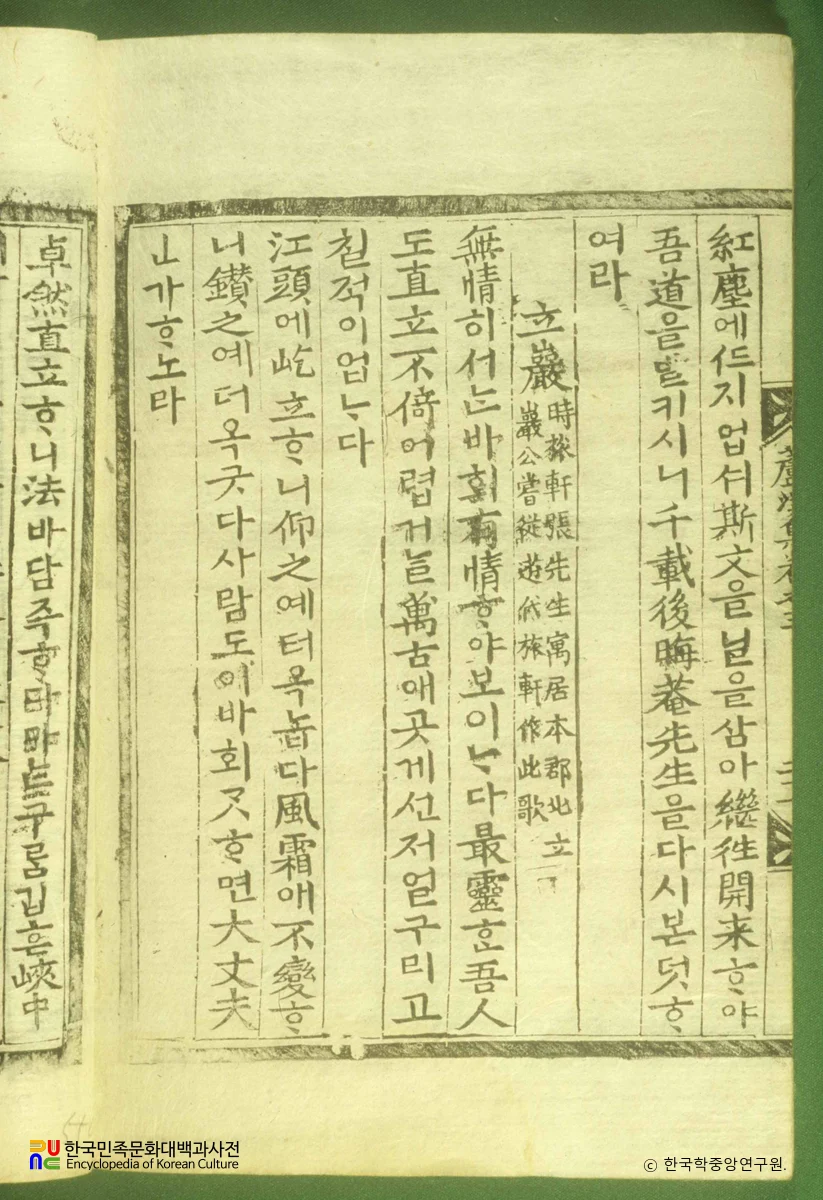 紅塵에ᄠᅳ지업셔斯文을닐을삼아繼往開来ᄒᆞ야
吾道을ᄇᆞᆯ키시니千載後晦菴先生을다시본덧ᄒᆞ
여라
立巖
時旅軒張先生寓居本郡北立
巖公嘗從遊代旅軒作此歌
無情히서ᄂᆞᆫ바회有情ᄒᆞ야보이ᄂᆞ다最靈ᄒᆞᆫ吾人
도直立不倚어렵거늘萬古애곳게선저얼구리고
칠적이업ᄂᆞ다
江頭에屹立ᄒᆞ니仰之예더옥놉다風霜애不變ᄒᆞ
니鑽之예더옥굿다사람도이바회ᄀᆞᆺᄒᆞ면大丈夫
ㄴ가ᄒᆞ노라
卓然直立ᄒᆞ니法바담즉ᄒᆞ다마ᄂᆞᆫ구룸깁흔峽中
蘆溪集卷之三
한국민족문화대백과사전
Encyclopedia of Korean Culture
ⓒ 한국학중앙연구원.